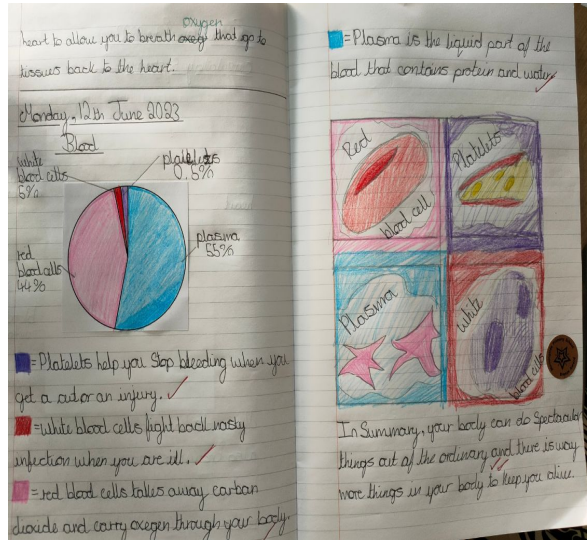 oxygen
heart to allow you to breath oxeg that go to
tissues back to the heart.
Monday, 12th June 2023
Blood
white
blood cells
5%
platelets
0.5%
plasma
55%
red
blood cells
44%
= Platelets help you Stop bleeding when you
get a cut or an injury.
= white blood cells fight back nasty
infection when you are ill.
= red blood cells takes away carban
dioxide and carry oxegen through your body.
= Plasma is the liquid part of the
blood that contains protein and water
Red
blood cell
Platelets
Plasma
White
blood cells
In Summary, your body can do Spectacular
things out of the ordinary and there is way
more things in your body to keep you alive.